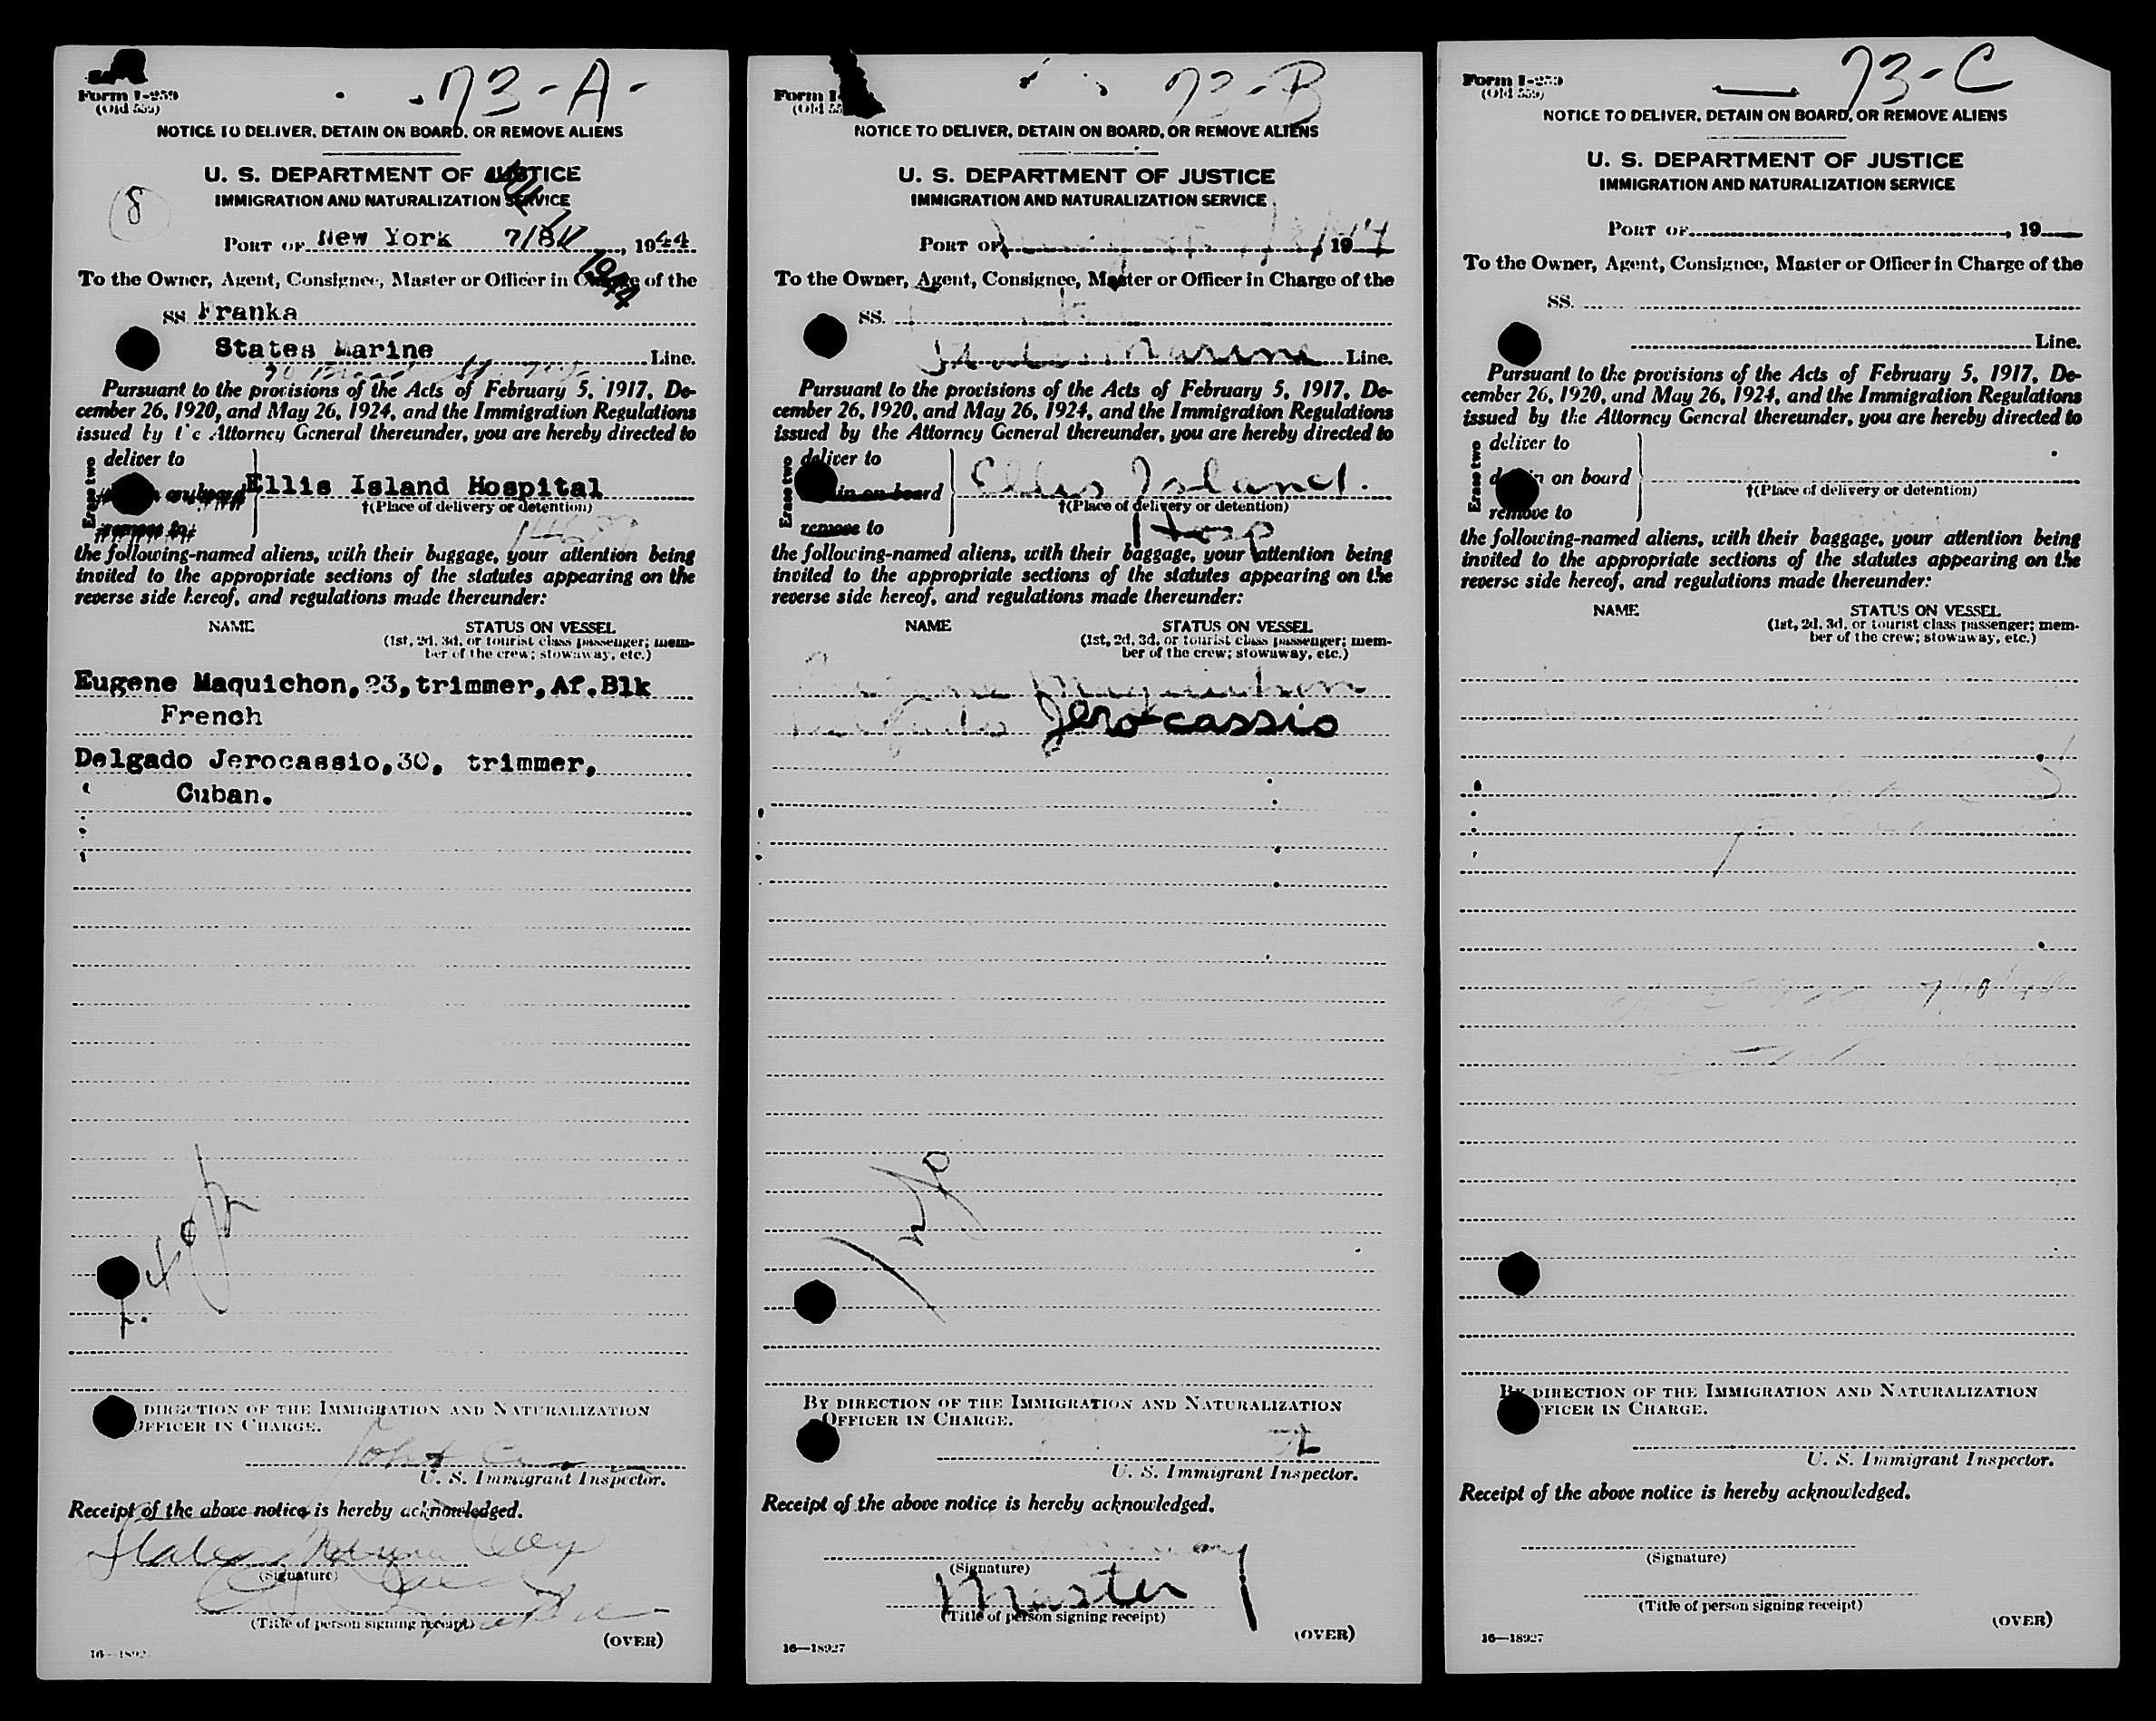 73-A-
Form I-259
(Old 559)
NOTICE TO DELIVER, DETAIN ON BOARD, OR REMOVE ALIENS
U. S. DEPARTMENT OF JUSTICE
IMMIGRATION AND NATURALIZATION SERVICE
8
PORT OF New York 7/8/, 1944
1944
To the Owner, Agent, Consignee, Master or Officer in Charge of the
SS. Franka
States Marine Line.
Pursuant to the provisions of the Acts of February 5, 1917, De-
cember 26, 1920, and May 26, 1924, and the Immigration Regulations
issued by the Attorney General thereunder, you are hereby directed to
Erase two
deliver to
on board Ellis Island Hospital
†(Place of delivery or detention)
remove to
the following-named aliens, with their baggage, your attention being
invited to the appropriate sections of the statutes appearing on the
reverse side hereof, and regulations made thereunder:
NAME STATUS ON VESSEL
(1st, 2d, 3d, or tourist class passenger; mem-
ber of the crew; stowaway, etc.)
Eugene Maquichon, 23, trimmer, Af. Blk
French
Delgado Jerocassio, 30, trimmer,
Cuban.
DIRECTION OF THE IMMIGRATION AND NATURALIZATION
OFFICER IN CHARGE.
John
U. S. Immigrant Inspector.
Receipt of the above notice is hereby acknowledged.
States Marine
(Signature)
(Title of person signing receipt)
(OVER)
16—1892
73-B
Form I-
(Old 55
NOTICE TO DELIVER, DETAIN ON BOARD, OR REMOVE ALIENS
U. S. DEPARTMENT OF JUSTICE
IMMIGRATION AND NATURALIZATION SERVICE
PORT OF , 1944
To the Owner, Agent, Consignee, Master or Officer in Charge of the
SS.
States Marine Line.
Pursuant to the provisions of the Acts of February 5, 1917, De-
cember 26, 1920, and May 26, 1924, and the Immigration Regulations
issued by the Attorney General thereunder, you are hereby directed to
Erase two
deliver to
in on board Ellis Island.
†(Place of delivery or detention)
remove to Hosp
the following-named aliens, with their baggage, your attention being
invited to the appropriate sections of the statutes appearing on the
reverse side hereof, and regulations made thereunder:
NAME STATUS ON VESSEL
(1st, 2d, 3d, or tourist class passenger; mem-
ber of the crew; stowaway, etc.)
Maquichon
Jerocassio
BY DIRECTION OF THE IMMIGRATION AND NATURALIZATION
OFFICER IN CHARGE.
U. S. Immigrant Inspector.
Receipt of the above notice is hereby acknowledged.
(Signature)
Master
(Title of person signing receipt)
(OVER)
16—18927
73-C
Form I-259
(Old 559)
NOTICE TO DELIVER, DETAIN ON BOARD, OR REMOVE ALIENS
U. S. DEPARTMENT OF JUSTICE
IMMIGRATION AND NATURALIZATION SERVICE
PORT OF , 19
To the Owner, Agent, Consignee, Master or Officer in Charge of the
SS.
Line.
Pursuant to the provisions of the Acts of February 5, 1917, De-
cember 26, 1920, and May 26, 1924, and the Immigration Regulations
issued by the Attorney General thereunder, you are hereby directed to
Erase two
deliver to
detain on board
†(Place of delivery or detention)
remove to
the following-named aliens, with their baggage, your attention being
invited to the appropriate sections of the statutes appearing on the
reverse side hereof, and regulations made thereunder:
NAME STATUS ON VESSEL
(1st, 2d, 3d, or tourist class passenger; mem-
ber of the crew; stowaway, etc.)
BY DIRECTION OF THE IMMIGRATION AND NATURALIZATION
OFFICER IN CHARGE.
U. S. Immigrant Inspector.
Receipt of the above notice is hereby acknowledged.
(Signature)
(Title of person signing receipt)
(OVER)
16—18927